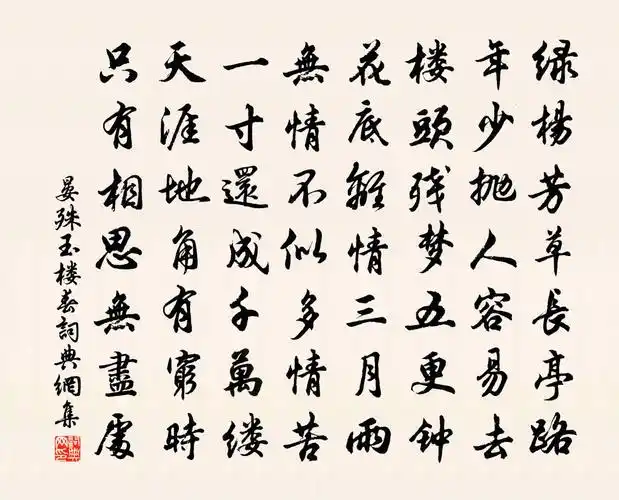 绿杨芳草長亭路
年少抛人容易去
楼頭残梦五更钟
花底離情三月雨
無情不似多情苦
一寸還成千萬缕
天涯地角有窮時
只有相思無盡處
晏殊玉楼春詞典網集